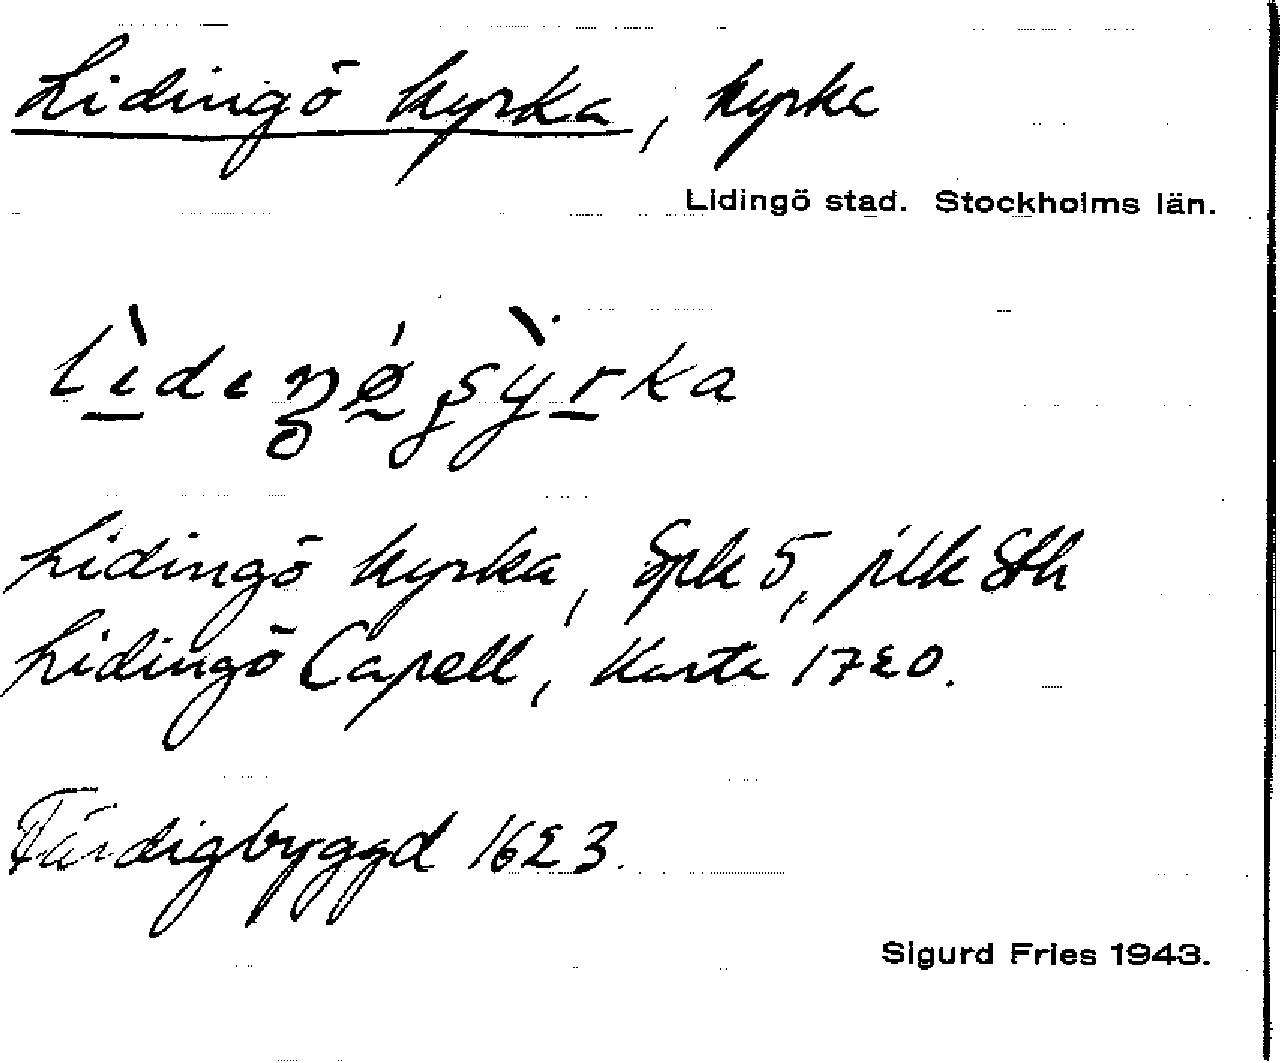 Lidingö kyrka, kyrka
Lidingö stad. Stockholms län.
Lidingö kyrka, Spk 5, jdk Sth
Lidingö Capell, Karta 1720.
Färdigbyggd 1623.
Sigurd Fries 1943.